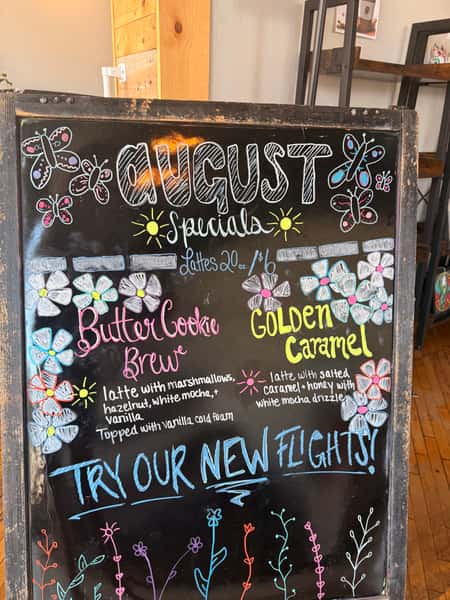 AUGUST
Specials
Lattes 20oz / $6
Butter Cookie
Brew
latte with marshmallows,
hazelnut, white mocha, +
vanilla.
Topped with vanilla cold foam
GOLDEN
CARAMEL
latte with salted
caramel + honey with
white mocha drizzle
TRY OUR NEW FLIGHTS!